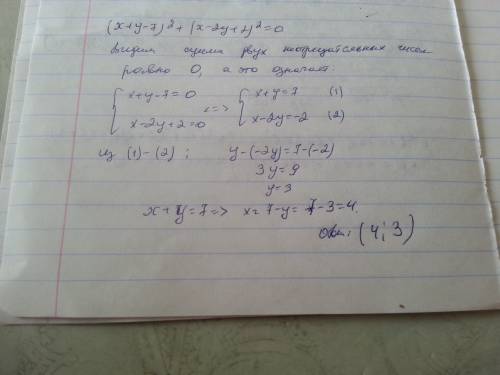 (x+y-7)² + (x-2y+2)² = 0
видим сумма двух неотрицательных чисел
равно 0, а это означает:
{ x+y-7=0 <=> { x+y=7 (1)
{ x-2y+2=0 { x-2y=-2 (2)
из (1)-(2): y-(-2y)=7-(-2)
3y=9
y=3
x+y=7 => x=7-y=7-3=4.
Отв: (4; 3)